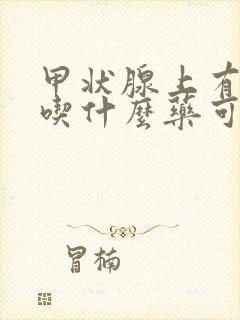 甲状腺上有
喫什麼藥可
冒楠